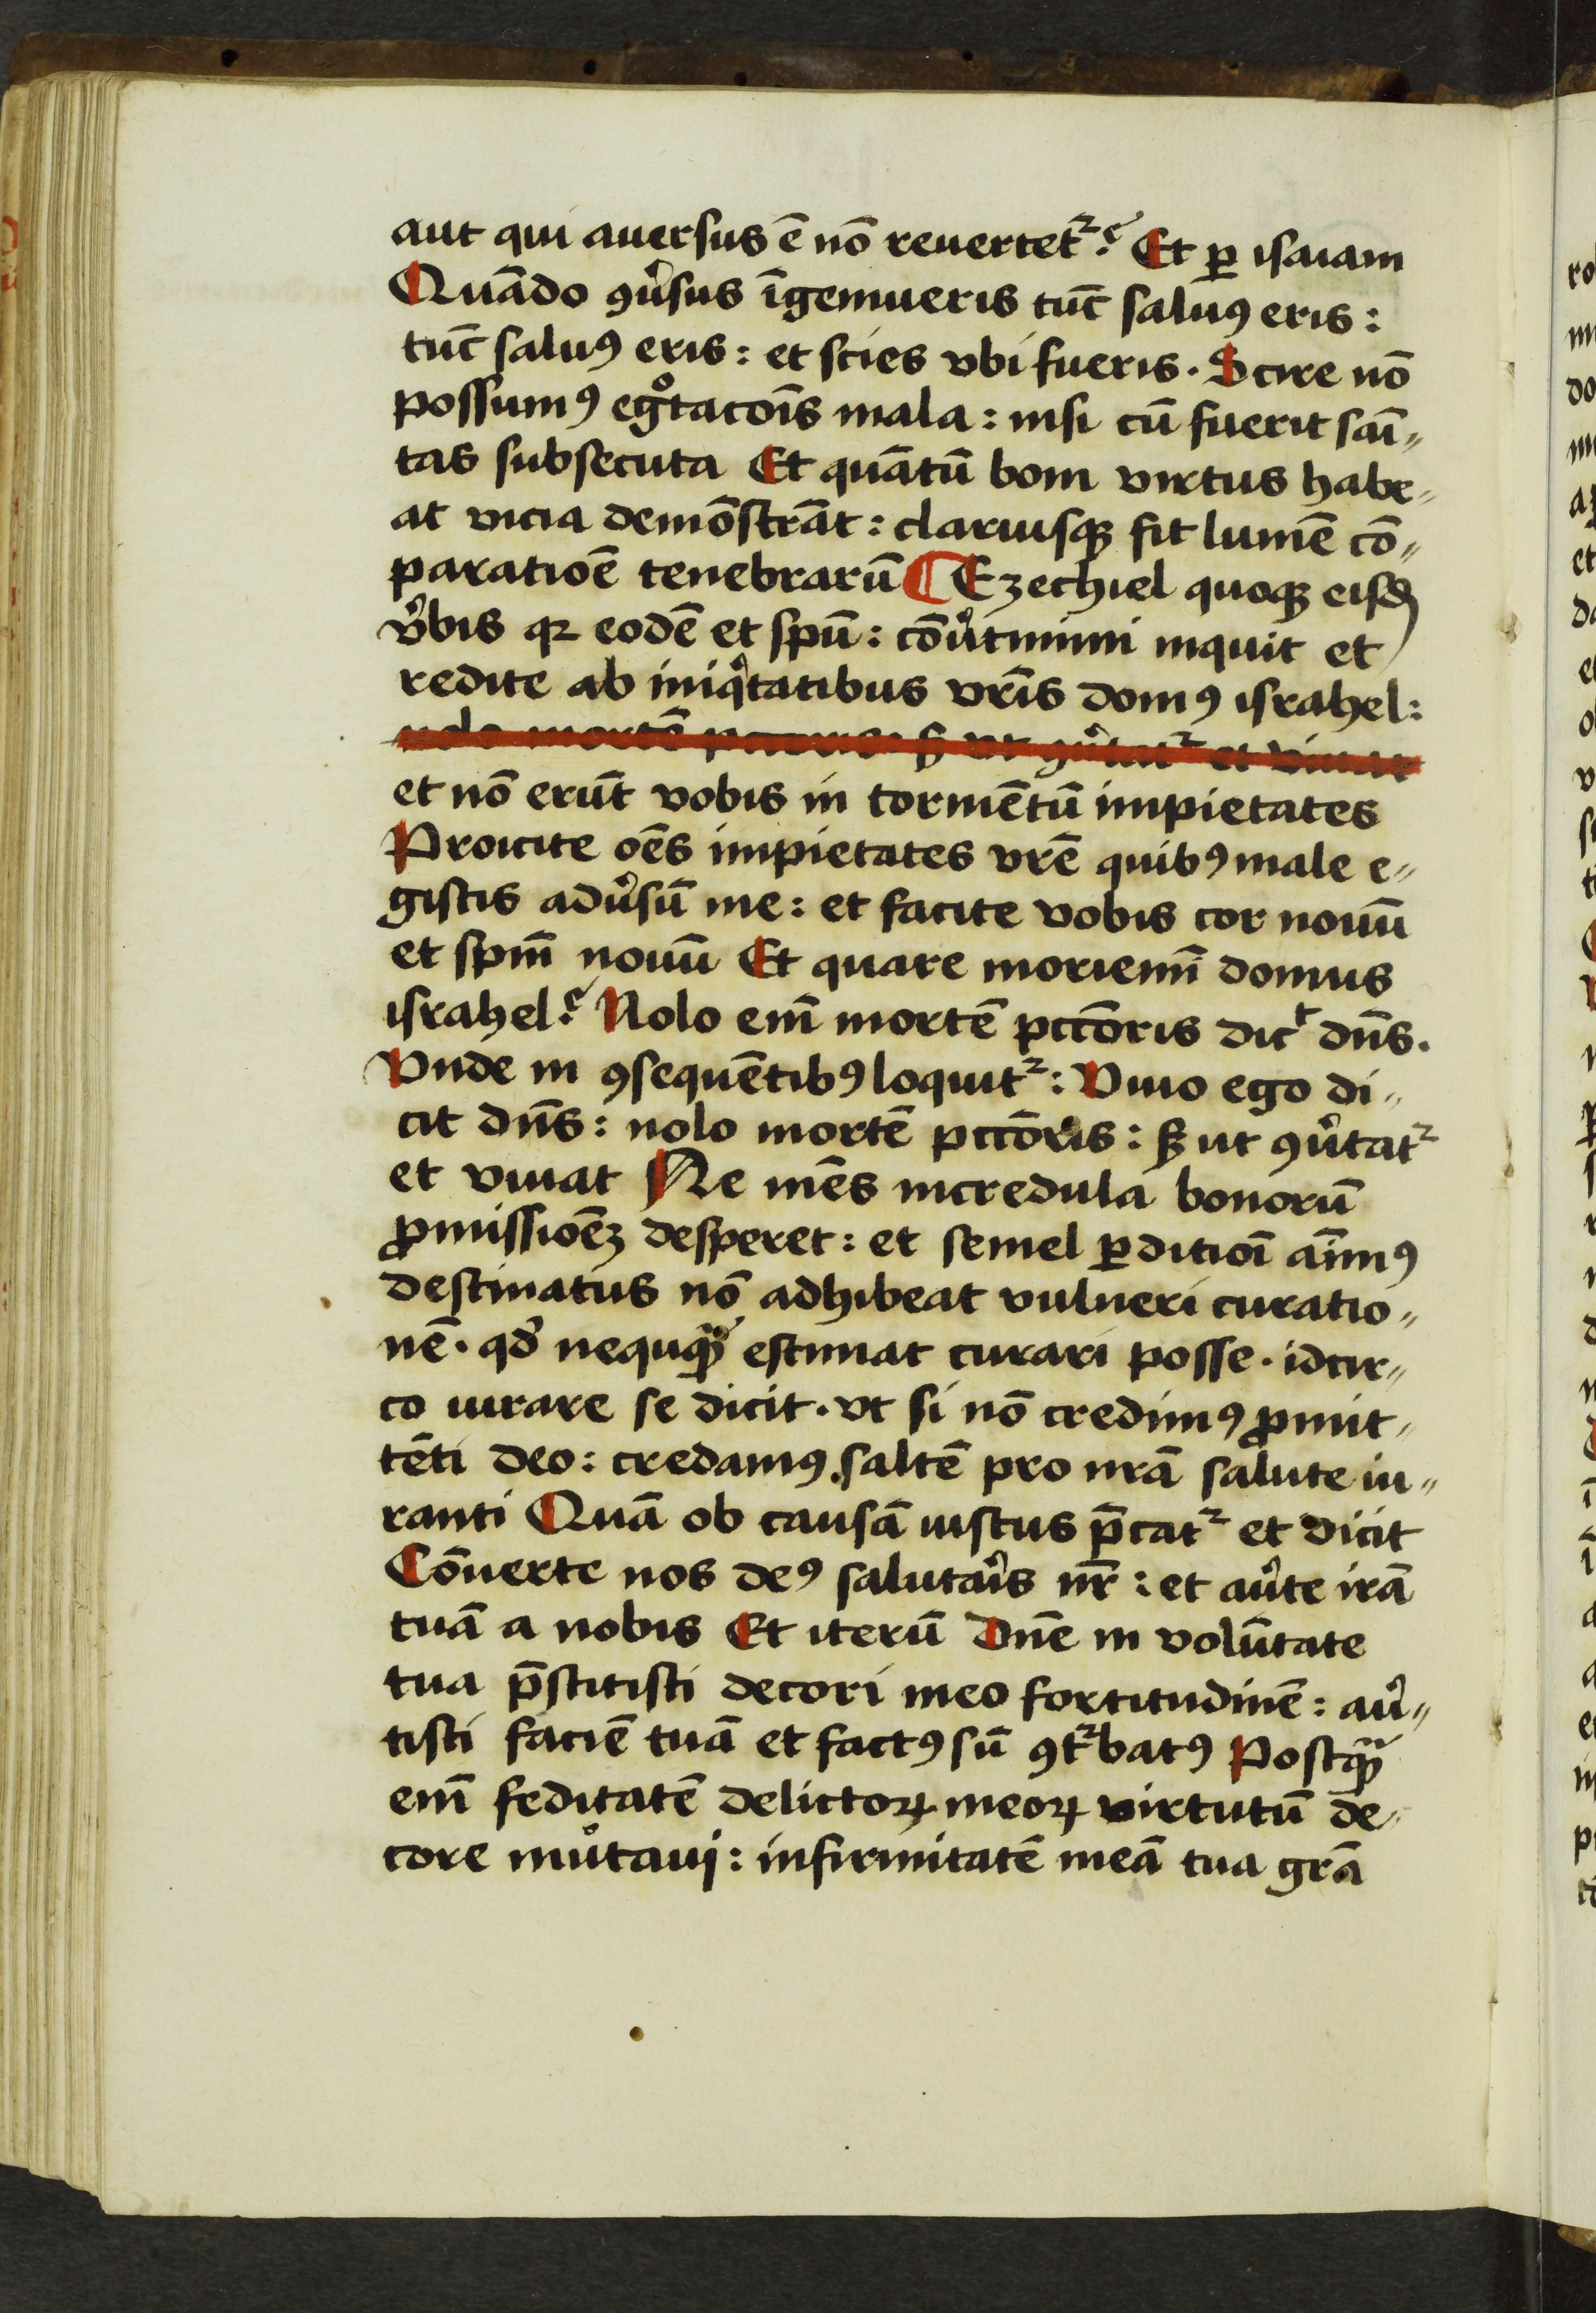 aut qui auersus ē nō reuertet᷑? Et ꝑ isaiam
Quādo ꝯu᷑sus īgemueris tūc saluꝰ eris:
tūc saluꝰ eris: et scies vbi fueris. Scire nō
possumꝰ egͦtacōis mala: nisi cū fuerit sāi„
tas subsecuta Et quātū boni virtus habe„
at vicia demōstrāt: clariusqꝫ fit lumē cō„
paratiōe tenebrarū ¶ Ezechiel quoqꝫ eisdꝫ
v᷑bis qꝛ eodē et spū: cōu᷑timini inquit et
redite ab iniqͥtatibus vr̄is domꝰ israhel:
nolo mortē pccoris: sꝫ vt ꝯu᷑tat᷑ et viuat
et nō erūt vobis in tormētū impietates
Proicite oēs impietates vrē quibꝰ male e„
gistis adu᷑sū me: et facite vobis cor nouū
et spm̄ nouū Et quare moriemī domus
israhel? Nolo em̄ mortē pccōris dicᵗ dn̄s.
Vnde in ꝯsequētibꝰ loquit᷑: Viuo ego di„
cit dn̄s: nolo mortē pccōris: sꝫ ut ꝯu᷑tat᷑
et viuat Ne mēs incredula bonorū
ꝓmissiōeꝫ desperet: et semel ꝑditiōi aīmꝰ
destinatus nō adhibeat vulneri curatio„
nē. qd᷑ nequqᷓꝫ estimat curari posse. idcir„
co iurare se dicit. vt si nō credimꝰ ꝓmit„
tēti deo: credamꝰ saltē pro nrā salute iu„
ranti Quā ob causā iustus p̄cat᷑ et dicit
Cōuerte nos deꝰ salutar᷑is nr̄: et au᷑te irā
tuā a nobis Et iterū Dn̄e in volūtate
tua p̄stitisti decori meo fortitudinē: au᷑„
tisti faciē tuā et factꝰ sū ꝯt᷑batꝰ Postqᷓꝫ
em̄ feditatē delictoꝝ meoꝝ virtutū de„
core mu͛taui: infirmitatē meā tua grā